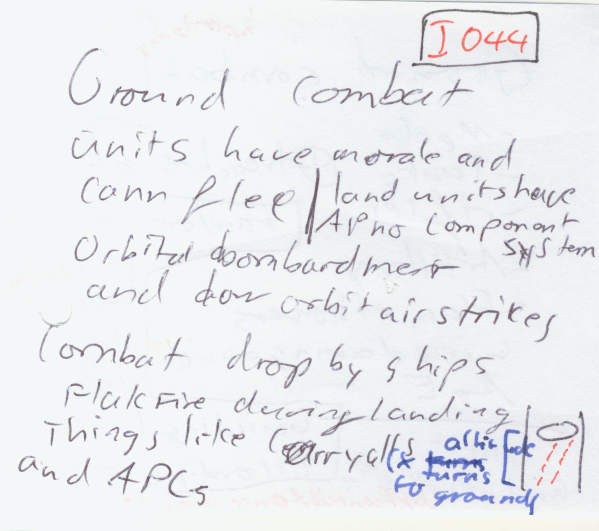 I 044
Ground combat
units have morale and
cann flee | land units have
AP no component
system
Orbital boombardment
and low orbit airstrikes
Combat drop by ships
Flak Fire during landing
Things like Carryalls
and APCs
(x turns
to ground